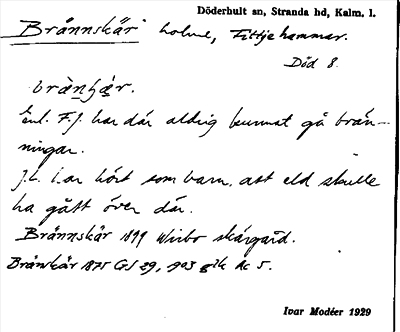 Döderhult sn, Stranda hd, Kalm. l.
Brännskär holme, Fittjehammar.
Död 8.
brànʃæ̀r.
Enl. F.J. har där aldrig kunnat gå brän-
ningar.
J.L. i. ar hört som barn, att eld skulle
ha gått över där.
Brännskär 1899 Wirbo skärgård.
Brånskär 1875 GS 29, 903 Ac 5.
Ivar Modéer 1929